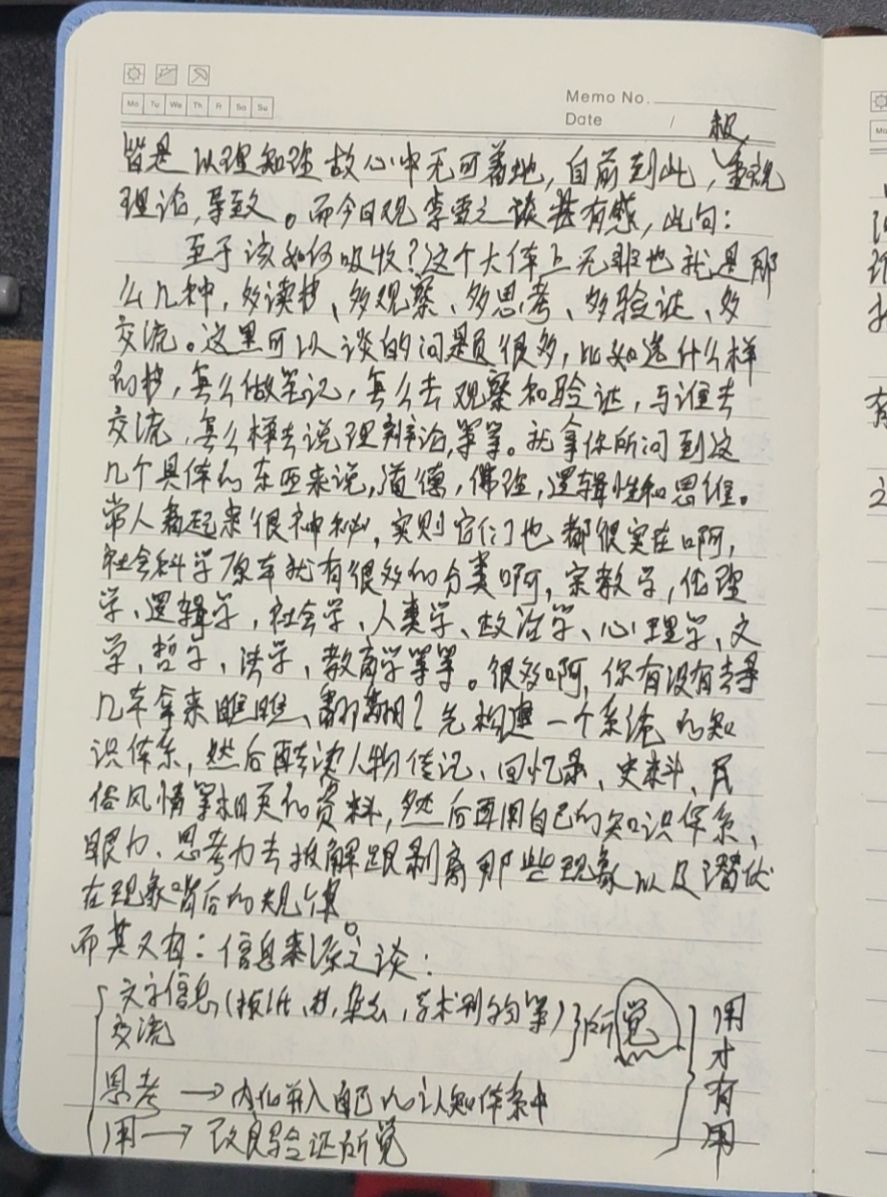 Mo Tu We Th Fr Sa Su
Memo No.
Date /
极
皆是以理知理故心中无可着地,自前到此,重视
理论,导致。而今日观李雲之谈甚有感,此句:
至于该如何吸收?这个大体上无非也就是那
么几种,多读书、多观察、多思考、多验证、多
交流。这里可以谈的问题很多,比如选什么样
的书,怎么做笔记,怎么去观察和验证,与谁去
交流,怎么样去说理辩论,等等。就拿你所问到这
几个具体的东西来说,道德,佛理,逻辑性和思维。
常人看起来很神秘,实则它们也都很实在啊,
社会科学原本就有很多的分类啊,宗教学,伦理
学、逻辑学,社会学、人类学、政治学、心理学、文
学、哲学、法学、教育学等等。很多啊,你有没有去寻
几本拿来瞧瞧、翻翻?先构建一个系统的知
识体系,然后再去读人物传记、回忆录、史料、民
俗风情等相关的资料,然后再用自己的知识体系、
眼力、思考力去拆解跟剥离那些现象以及潜伏
在现象背后的规律。
而其又有:信息来源之谈:
文字信息(报纸,书,杂志,学术刊物等)所觉
交流
思考→内化并入自己的认知体系中
用→改良验证所觉
用才有用